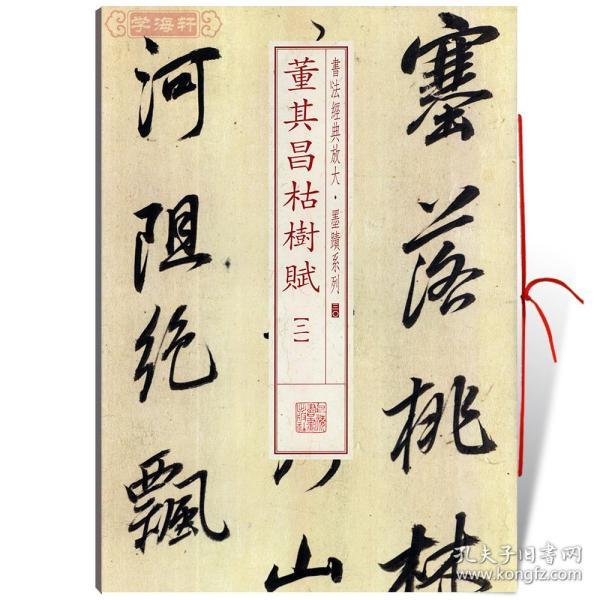 学海轩
塞落桃林
書法經典放大·墨蹟系列 三〇
董其昌枯樹賦【二】
山
河阻絶飄
孔夫子旧书网
www.kongfz.com